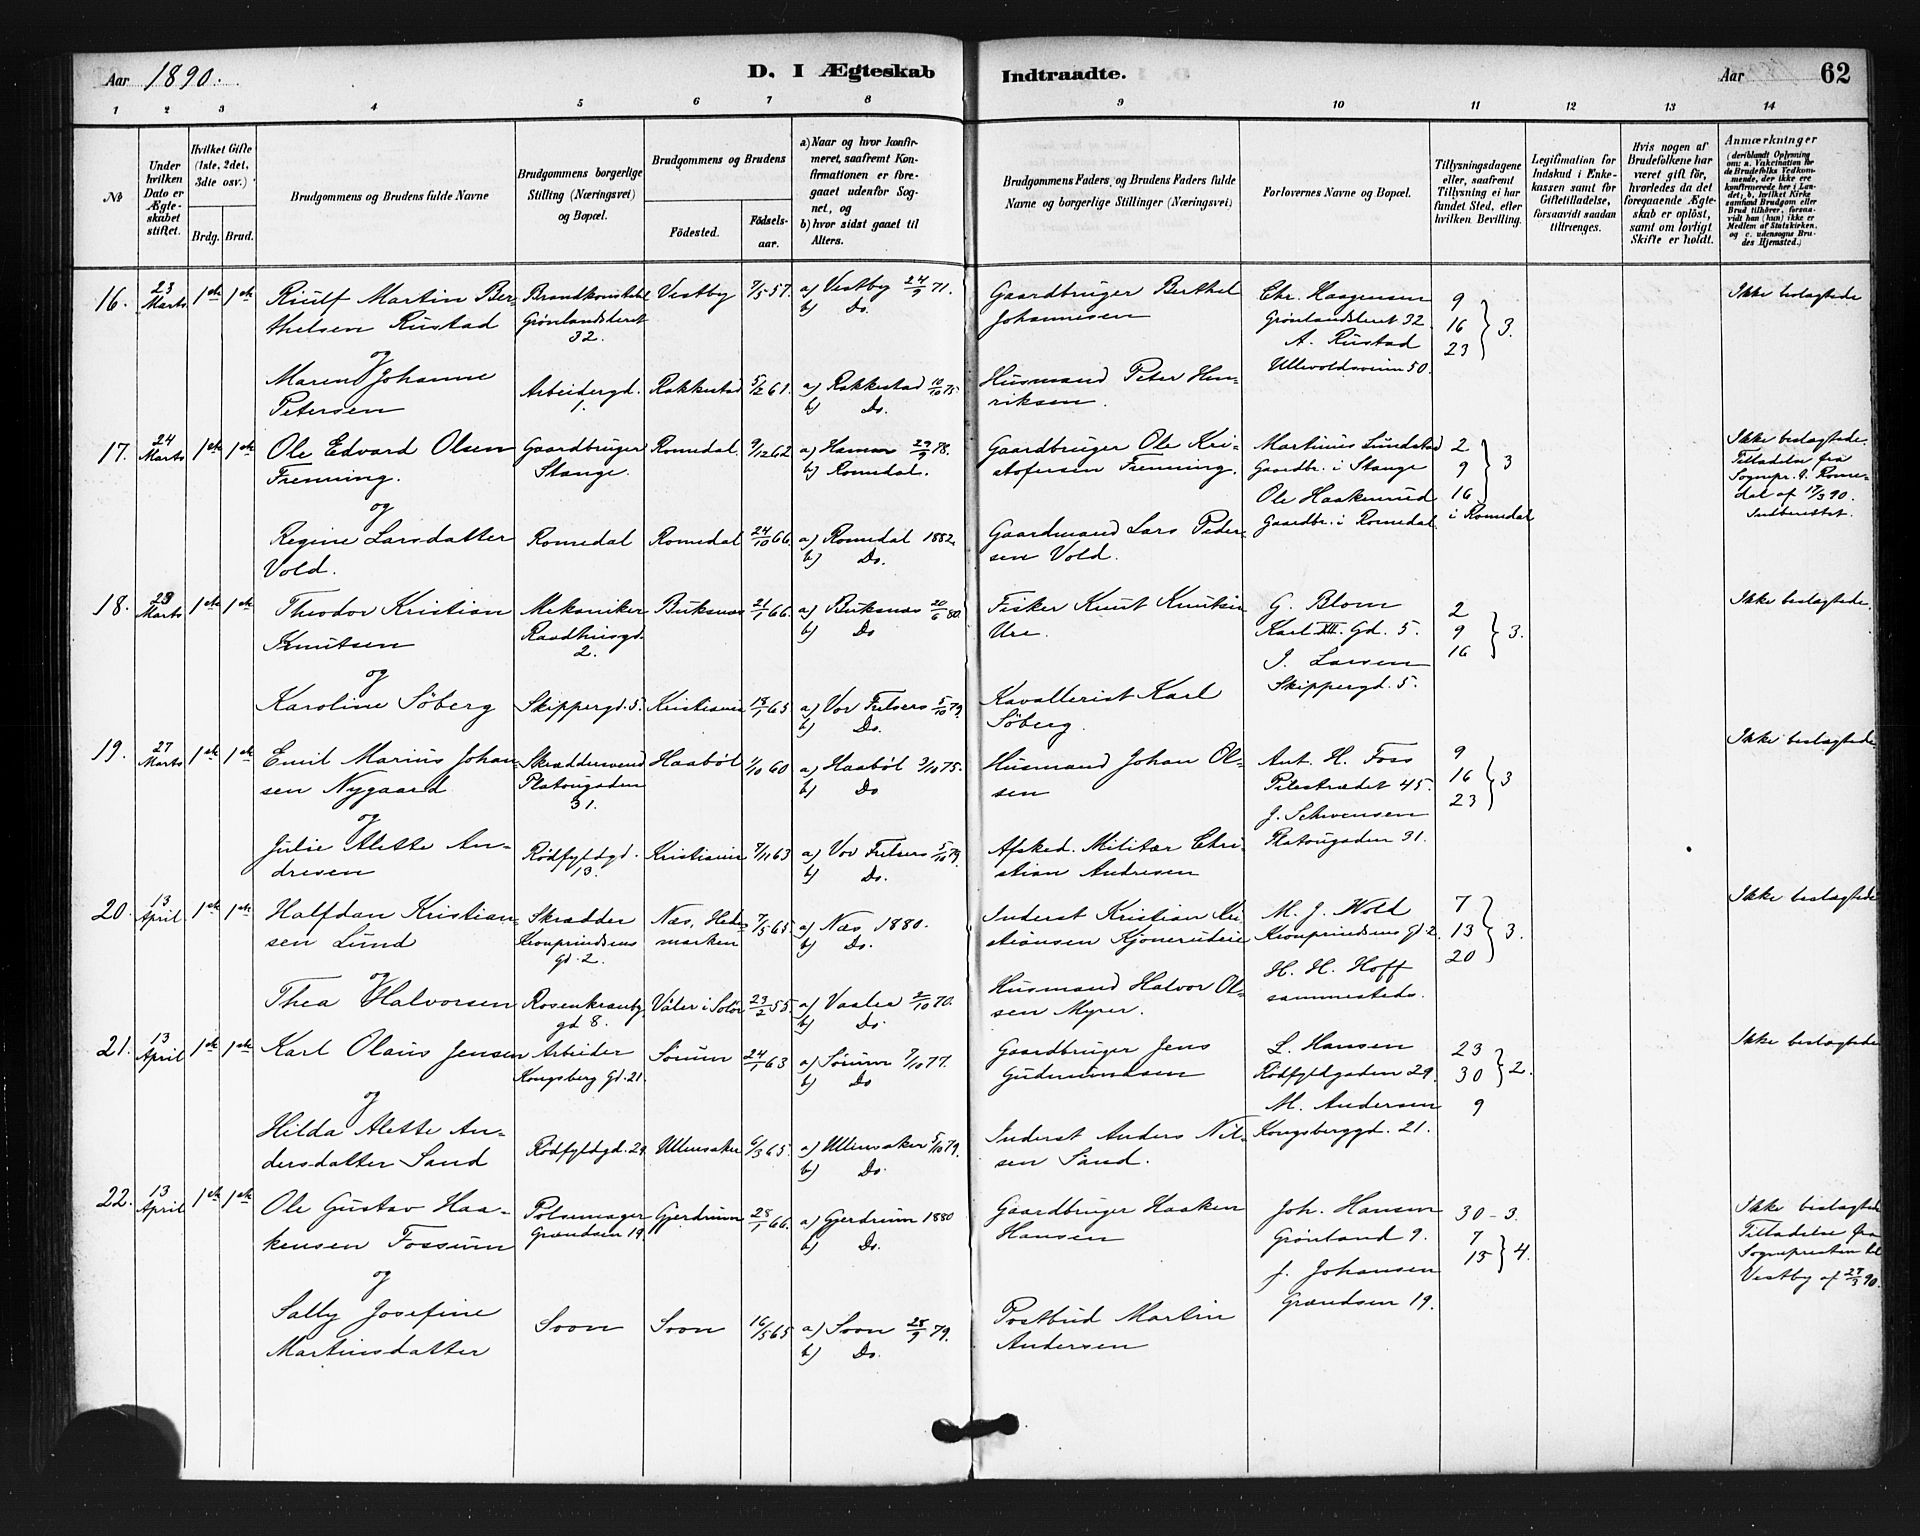 Aar 1890.
D. I Ægteskab Indtraadte.
Aar 62
1 2 3 4 5 6 7 8 9 10 11 12 13 14
№
Under hvilken Dato er Ægteskabet stiftet.
Hvilket Gifte (1ste, 2det, 3die osv.)
Brdg. Brud.
Brudgommens og Brudens fulde Navne
Brudgommens borgerlige Stilling (Næringsvei) og Bopæl.
Brudgommens og Brudens
Födested.
Födselsaar.
a) Naar og hvor konfirmeret, saafremt Konfirmationen er foregaaet udenfor Sognet, og
b) hvor sidst gaaet til Alters.
Brudgommens Faders og Brudens Faders fulde Navne og borgerlige Stillinger (Næringsvei)
Forlovernes Navne og Bopæl.
Tillysningsdagene eller, saafremt Tillysning ei har fundet Sted, efter hvilken Bevilling.
Legitimation for Indskud i Enkekassen samt for Giftetilladelse, forsaavidt saadan tiltrænges.
Hvis nogen af Brudefolkene har været gift för, hvorledes da det foregaaende Ægteskab er oplöst, samt om lovligt Skifte er holdt.
Anmærkninger
(deriblandt Oplysning om: a. Vakcination for de Brudefolks Vedkommende, der ikke ere konfirmerede her i Landet; b. hvilket Kirkesamfund Brudgom eller Brud tilhörer, forsaavidt han (hun) ikke er Medlem af Statskirken, og c. udensogns Brudes Hjemsted.)
16. 23 Marts 1ste 1ste
Riulf Martin Ber-
thelsen Rustad
Brandkonstabel
Grønlandsleret
32.
Vestby 7/5 57. a) Vestby 24/9 71.
b) Do.
Gaardbruger Berthel
Johannesen
Chr. Haagensen
Grønlandsleret 32
A. Rustad
Ullevoldsveien 50.
9
16
23
3.
Ikke beslægtede
og
Maren Johanne
Petersen
Arbeidergd.
1.
Rakkestad 5/2 61. a) Rakkestad 10/10 75.
b) Do.
Husmand Peter Hen-
riksen.
17. 24 Marts 1ste 1ste
Ole Edvard Olsen
Frenning.
Gaardbruger
Stange.
Romedal. 9/12 62 a) Hamar 29/9 78.
b) Romedal.
Gaardbruger Ole Kri-
stofersen Frenning.
Martinus Lundstad
Gaardbr. i Stange
Ole Haakenrud
Gaardbr. i Romedal
2
9
16
3
i Romedal
Ikke beslægtede.
Tilladelse fra
Sognepr. i Rome-
dal af 17/3 90.
Indberettet.
og
Regine Larsdatter
Vold.
Romedal Romedal 24/10 66. a) Romedal 1882.
b) Do.
Gaardmand Lars Peder-
sen Vold.
18. 23 Marts 1ste 1ste
Theodor Kristian
Knutsen
Mekaniker
Raadhusgd.
2.
Buksnæs 21/1 66. a) Buksnæs 20/6 80.
b) Do
Fisker Knut Knutsen
Ure.
G. Blom
Karl XII. Gd. 5.
J. Larsen
Skippergd. 5.
2
9
16
3.
Ikke beslægtede.
og
Karoline Söberg
Skippergd. 5. Kristiania 13/1 65 a) Vor Frelsers 5/10 79.
b) Do.
Kavallerist Karl
Söberg.
19. 27 Marts 1ste 1ste
Emil Marius Johan-
sen Nygaard
Skræddersvend
Platougaden
31.
Haaböl 1/10 60 a) Haaböl 3/10 75.
b) Do
Husmand Johan Ol-
sen
Ant. H. Foss
Pilestrædet 45.
J. Schwensen
Platougaden 31.
9
16
23
3
Ikke beslægtede
og
Julie Alette An-
dresen
Rödfyldgd.
13.
Kristiania 7/11 63 a) Vor Frelsers 5/10 79.
b) Do.
Afsked. Militær Chri-
stian Andresen
20. 13 April 1ste 1ste
Halfdan Kristian-
sen Lund
Skrædder
Kronprindsens
gd. 2.
Næs, Hede-
marken
7/5 65. a) Næs 1880.
b) Do.
Inderst Kristian Kri-
stiansen Kjonerudeie
M. J. Wold
Kronprindsens gd. 2.
H. H. Hoff
sammesteds.
7
13
20
3.
Ikke beslægtede
og
Thea Halvorsen
Rosenkrantz
gd 8.
Våler i Solör 23/2 55. a) Vaaler 2/10 70.
b) Do.
Husmand Halvor Ol-
sen Myrer.
21. 13 April 1ste 1ste
Karl Olaus Jensen
Arbeider
Kongsberg Gd. 21.
Sörum 24/1 63 a) Sörum 7/10 77.
b) Do
Gaardbruger Jens
Gudmundsen
L. Hansen
Rödfyldgaden 29.
M. Andersen
Kongsberggd. 21.
23
30
9
2.
Ikke beslægtede
og
Hilda Alette An-
dersdatter Sand
Rödfyldgd. 29. Ullensaker 6/3 65. a) Ullensaker 5/10 79.
b) Do.
Inderst Anders Nil-
sen Sand.
22. 13 April 1ste 1ste
Ole Gustav Haa-
kensen Fossum
Pölsemager
Grændsen 19.
Gjerdrum 28/1 66. a) Gjerdrum 1880
b) Do.
Gaardbruger Haaken
Hansen
Joh. Hansen
Grønland 9.
J. Johansen
Grændsen 19.
30 - 3.
7
13
4.
Ikke beslægtede
Tilladelse fra
Sognepresten til
Vestby af 27/3 90.
og
Sally Josefine
Martinsdatter
Soon Soon 16/5 65 a) Soon 28/9 79.
b) Do.
Postbud Martin
Andersen